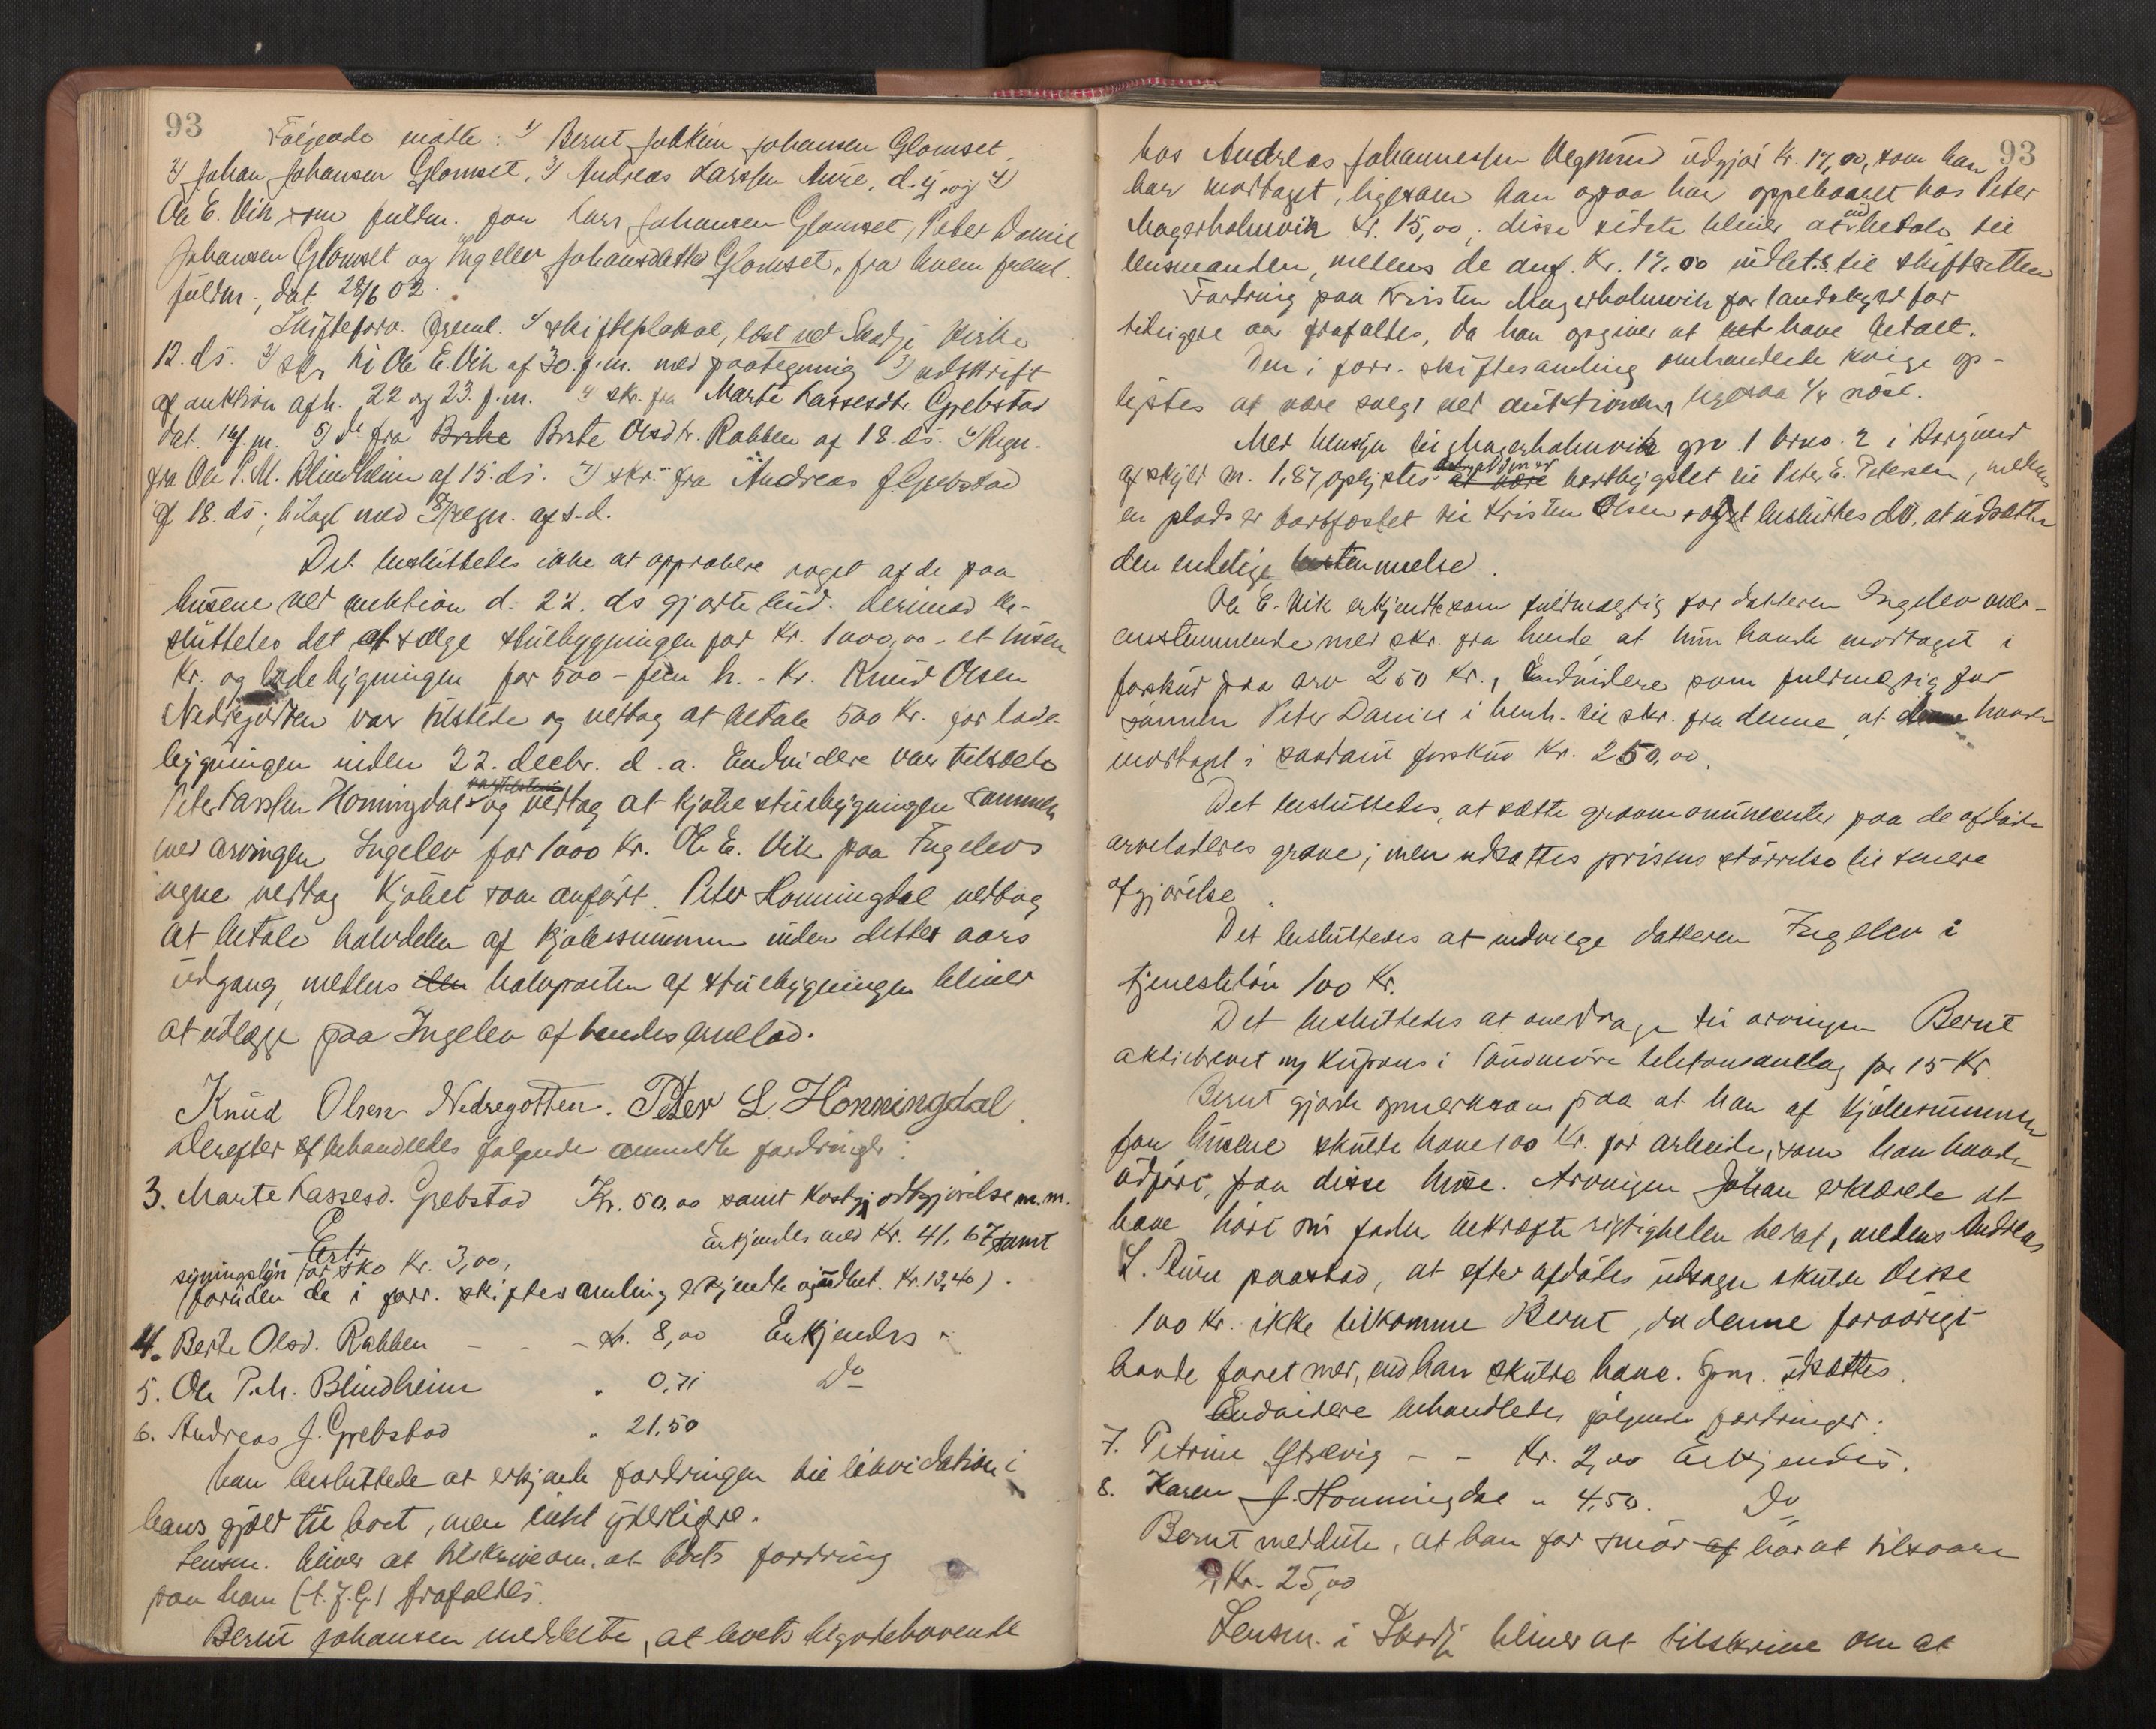 93
Følgende mødte: 1/ Bernt Joakim Johansen Glomset,
2/ Johan Johansen Glomset, 3/ Andreas Larssen Aure, d. y. og 4/
Ole E. Vik som fuldm. for Lars Johansen Glomset, Peter Daniel
Johansen Glomset og Ingelev Johansdatter Glomset, fra hvem freml.
fuldm., dat. 28/6 02.
Skifteforv. freml. 1/ skifteplakat, læst ved Skodje kirke
12. ds. 2/ skr. til Ole E. Vik af 30. f.m. med paategning 3/ udskrift
af auktion afh. 22 og 23. f.m. 4/ skr. fra Marte Lassesdtr. Grebstad
dat. f.m. 5/ do fra Berte Olsdtr. Rabben af 18. ds. 6/ Regn.
fra Ole P. M. Blindheim af 15. ds. 7/ skr. fra Andreas J. Grebstad
af 18. ds., bilagt med 8/ regn. af s.d.
Det besluttedes ikke at approbere noget af de paa
husene ved auktion d. 22. ds gjorte bud. Derimod be-
sluttedes det at sælge stuebygningen for Kr. 1000,00 - et tusen
Kr. og ladebygningen for 500 - fem h. - Kr. Knud Olsen
Nedregotten var tilstede og vedtog at betale 500 Kr. for lade-
bygningen inden 22. decbr. d.a. Endvidere var tilstede
Peter Larssen Honningdal og vedtog at kjøbe stuebygningen sammen
med arvingen Ingelev for 1000 Kr. Ole E. Vik paa Ingelevs
vegne vedtog kjøbet som anført. Peter Honningdal vedtog
at betale halvdelen af kjøbesummen inden dettes aars
udgang, medens den halvparten af stuebygningen bliver
at udlægge paa Ingelev af hendes arvelod.
Knud Olsen Nedregotten. Peter L Honningdal.
Derefter behandledes følgende anmeldte fordringer:
3. Marte Lassesd. Grebstad Kr. 50,00 samt kostgodtgjørelse m.m.
Erkjendes med Kr. 41,67 samt
syningsløn for sko Kr. 3,00,
(foruden de i forr. skiftesamling erkjendte og udbet. Kr. 13,40).
4. Berte Olsd. Rabben - - - Kr. 8,00 Erkjendes
5. Ole P. M. Blindheim " 0,71 Do
6. Andreas J. Grebstad " 21,50
Man besluttede at erkjende fordringen til likvidation i
hans gjæld til boet, men intet yderligere.
Lensm. bliver at tilskrive om, at boets fordring
paa ham (A. J. G.) frafaldes.
Bernt Johansen meddelte, at boets tilgodehavende
93
hos Andreas Johannessen Vegsund udgjør Kr. 17,00, som han
har modtaget, ligesom han ogsaa har oppebaaret hos Peter
Magerholmvik Kr. 15,00; disse sidste bliver at indbetale til
lensmanden, medens de anf. Kr. 17.00 udlet. s. til skifteretten
Fordring paa Kristen Magerholmvik for landskyld for
tidligere aar frafaldes, da han opgiver at have betalt.
Den i forr. skiftesamling omhandlede kvige op-
lystes at være solgt ved auktionen, ligesaa 1/4 nøst.
Med hensyn til Magerholmvik gno. 1 brno. 2 i Borgund
af skyld m. 1,87, oplystes at være bortbygslet til Peter E. Petersen, medens
en plads er bortfæstet til Kristen Olsen besluttes det, at udsætte
den endelige bestemmelse.
Ole E. Vik erkjendte som fuldmægtig for datteren Ingelev over-
ensstemmende med skr. fra hende, at hun havde modtaget i
forskud paa arv 250 Kr., Endvidere som fuldmægtig for
sønnen Peter Daniel i henh. til skr. fra denne, at denne havde
modtaget i saadant forskud Kr. 250,00.
Det besluttedes, at sætte gravmonumenter paa de afdøde
arveladeres grave; men udsattes prisens størrelse til senere
afgjørelse.
Det besluttedes at indvilge datteren Ingelev i
tjenesteløn 100 Kr.
Det besluttedes at overdrage til arvingen Bernt
aktiebrevet og kupons i Søndmøre telefonanlæg for 15 Kr.
Bernt gjorde opmerksom paa at han af kjøbesummen
for husene skulde have 100 Kr. for arbeide, som han havde
udført, paa disse huse. Arvingen Johan erklærede at
have hørt sin fader bekræfte rigtigheden heraf, medens Andreas
L. Aure paastod, at efter afdødes udsagn skulde disse
100 Kr. ikke tilkomme Bernt, da denne forøvrigt
havde faaet mer, end han skulde have. Spm. udsættes.
Endvidere behandledes følgende fordringer:
7. Petrine - - Kr. 2,00 Erkjendes.
8. Karen J. Honningdal " 4,50. Do
Bernt meddelte, at han for smør af har at tilsvare
Kr. 25,00
Lensm. i Skodje bliver at tilskrive om at